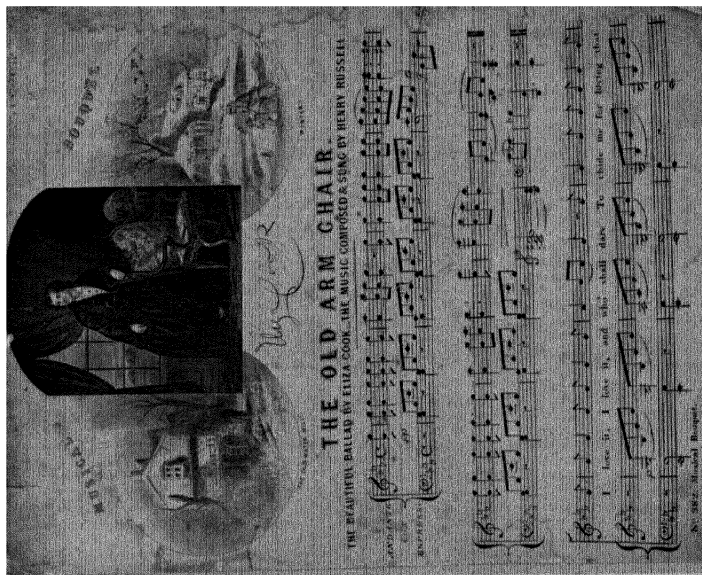 MUSICAL BOUQUET
WINTER
THE OLD ARM CHAIR.
THE BEAUTIFUL BALLAD BY ELIZA COOK, THE MUSIC COMPOSED & SUNG BY HENRY RUSSELL
ANDANTE
CON
ESPRESS:
I love it, I love it, and who shall dare To chide me for loving that
No. 382. Musical Bouquet.